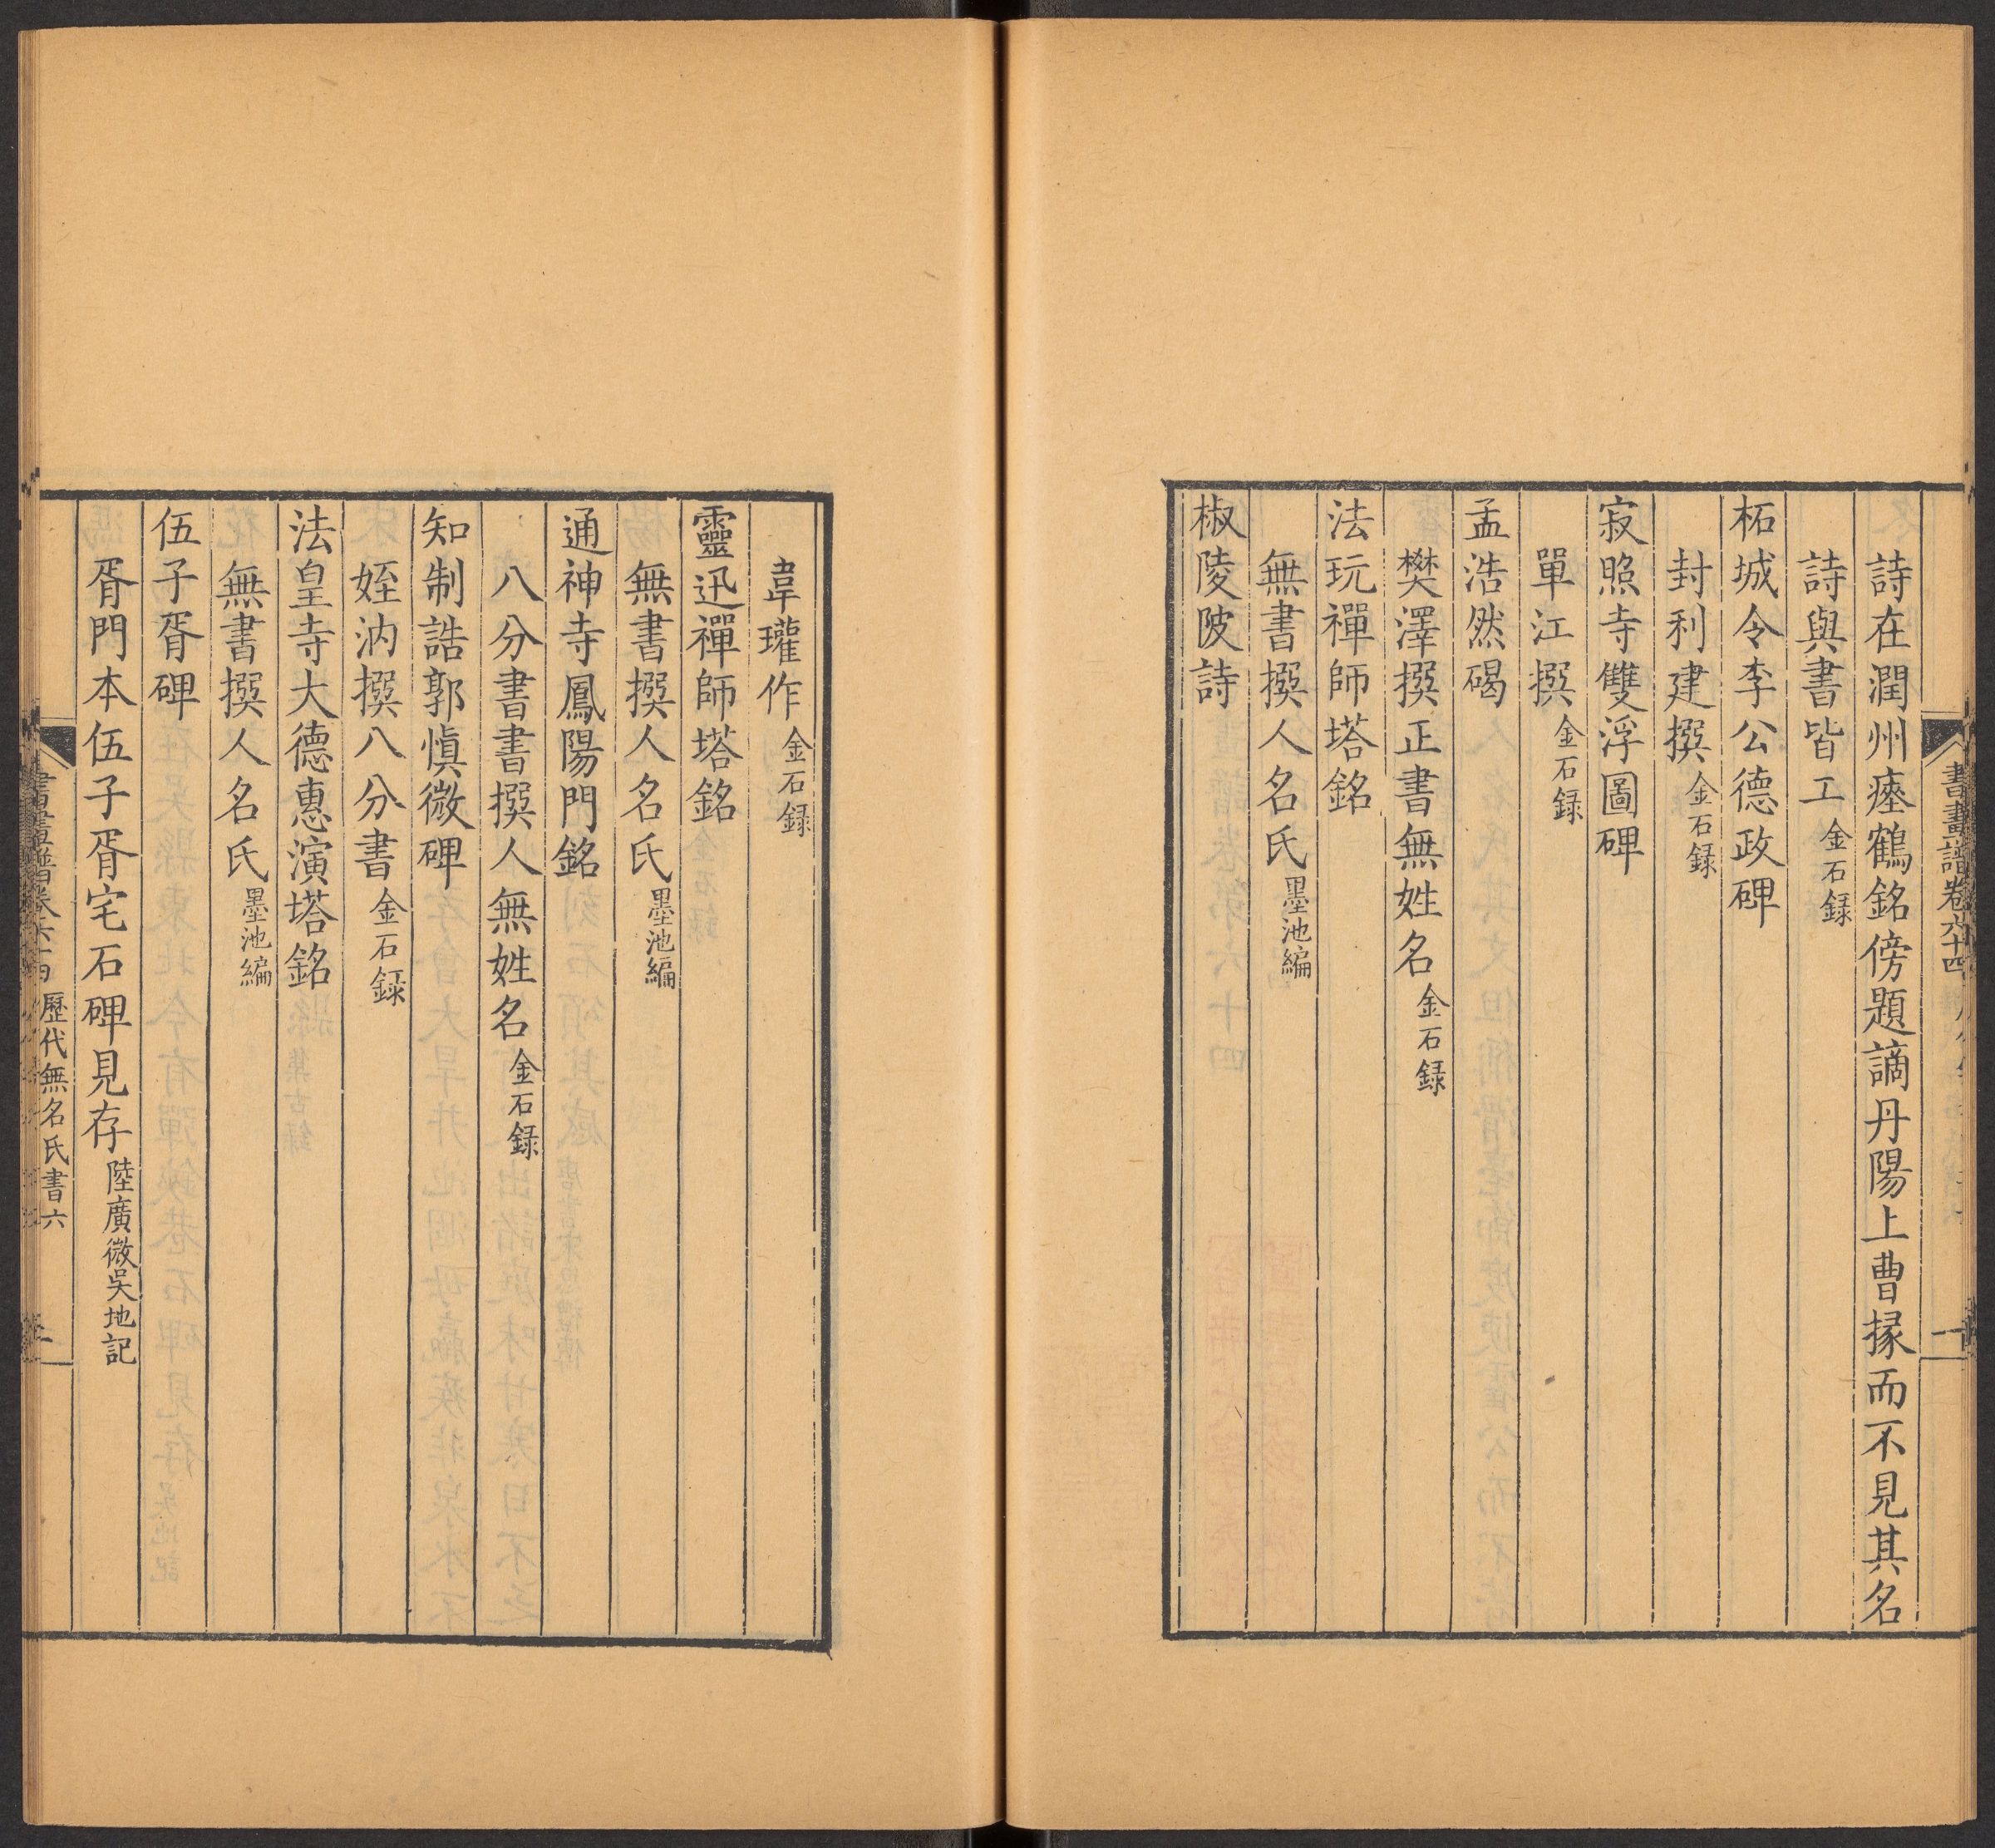 書畫譜卷六十四
詩在潤州瘞鶴銘傍題謫丹陽上曹掾而不見其名
詩與書皆工金石録
柘城令李公德政碑
封利建撰金石録
寂照寺雙浮圖碑
單江撰金石録
孟浩然碣
樊澤撰正書無姓名金石録
法玩禪師塔銘
無書撰人名氏墨池編
椒陵陂詩
韋瓘作金石録
靈迅禪師塔銘
無書撰人名氏墨池編
通神寺鳳陽門銘
八分書書撰人無姓名金石録
知制誥郭慎微碑
姪汭撰八分書金石録
法皇寺大德惠演塔銘
無書撰人名氏墨池編
伍子胥碑
胥門本伍子胥宅石碑見存陸廣微吳地記
歷代無名氏書六